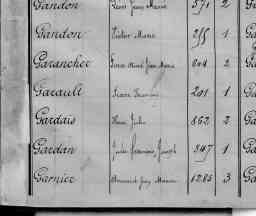 Gandon Jean Marie 571 2
Gandon Victor Marie 255 1
Garancher Pierre Jean Marie 2
Garault 201 1
Gardais Jules 862 2
Gardan Jules Joseph 847 1
Garnier Jean Marie 1285 3